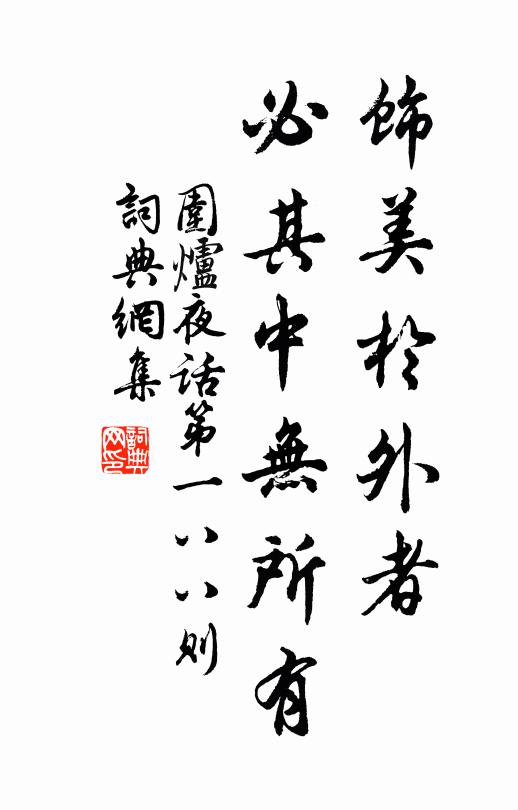 飾美於外者
必其中無所有
圍爐夜話第一八八則
詞典網集
詞典
网印